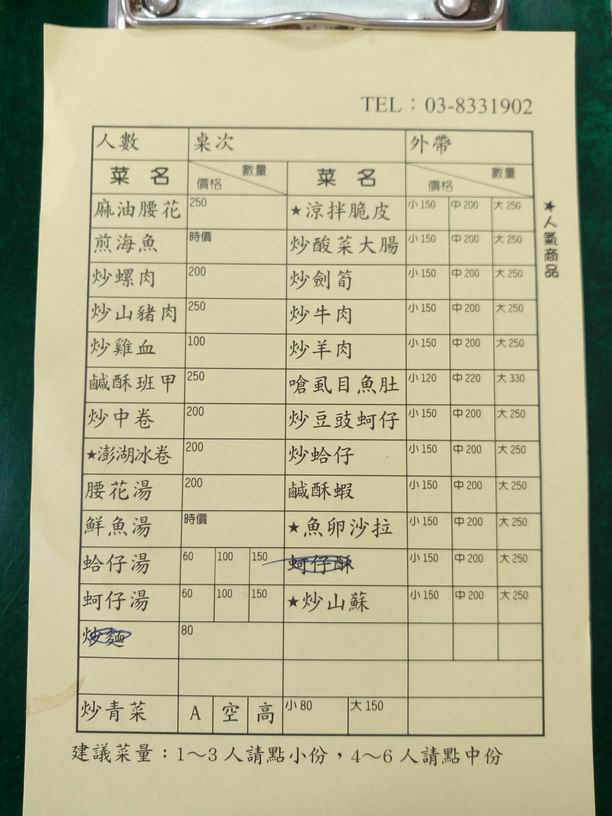 TEL：03-8331902
人數 桌次 外帶
菜名 價格 數量 菜名 價格 數量
麻油腰花 250 ★涼拌脆皮 小150 中200 大250
煎海魚 時價 炒酸菜大腸 小150 中200 大250
炒螺肉 200 炒劍筍 小150 中200 大250
炒山豬肉 250 炒牛肉 小150 中200 大250
炒雞血 100 炒羊肉 小150 中200 大250
鹹酥班甲 250 嗆虱目魚肚 小120 中220 大330
炒中卷 200 炒豆豉蚵仔 小150 中200 大250
★澎湖冰卷 200 炒蛤仔 小150 中200 大250
腰花湯 200 鹹酥蝦 小150 中200 大250
鮮魚湯 時價 ★魚卵沙拉 小150 中200 大250
蛤仔湯 60 100 150 蚵仔酥 小150 中200 大250
蚵仔湯 60 100 150 ★炒山蘇 小150 中200 大250
炒麵 80
炒青菜 A 空 高 小80 大150
建議菜量：1～3人請點小份，4～6人請點中份
★人氣商品